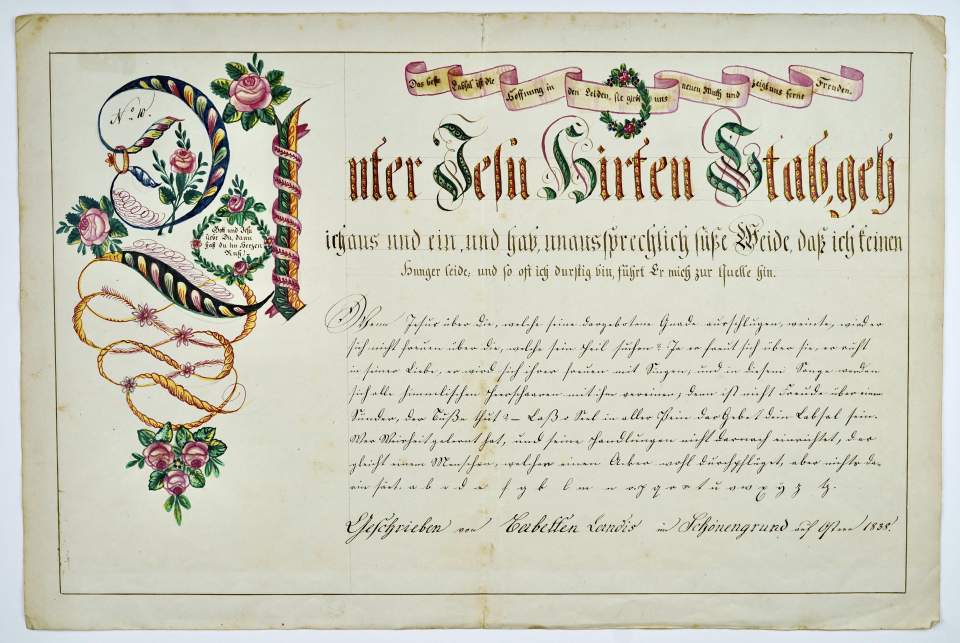 Das beste Labsal ist die Hoffnung in den Leiden, sie giebt uns neuen Muth und zeigt uns ferne Freuden.
No 10.
Unter Jesu Hirten Stab, geh
ich aus und ein, und hab, unaussprechlich süße Weide, daß ich keinen
Hunger leide; und so oft ich durstig bin, führt Er mich zur Quelle hin.
Gott und Jesu
übe Du, dann
hast du im Herzen
Ruh!
Wenn Jesus über die, welche seine dargebotene Gnade ausschlugen, weinte, wird er
sich nicht freuen über die, welche sein Heil suchen? Ja er freut sich über sie, er ruht
in seiner Liebe, er wird sich ihrer freuen mit Singen, und in diesem Sange werden
sich alle himmlischen Heerschaaren mit ihm vereinen; denn ist nicht Freude über einen
Sünder, der Buße thut? – Laß o Seel in aller Pein das Gebet dein Labsal sein.
Wer Weisheit gelernt hat, und seine Handlungen nicht darnach einrichtet, der
gleicht einem Menschen, welcher einen Acker wohl durchpflüget, aber nichts da-
rein säet. a b c d e f g h k l m n o p q r s t u v w x y z tz.
Geschrieben von Babetten Landis in Schönengrund auf Ostern 1838.